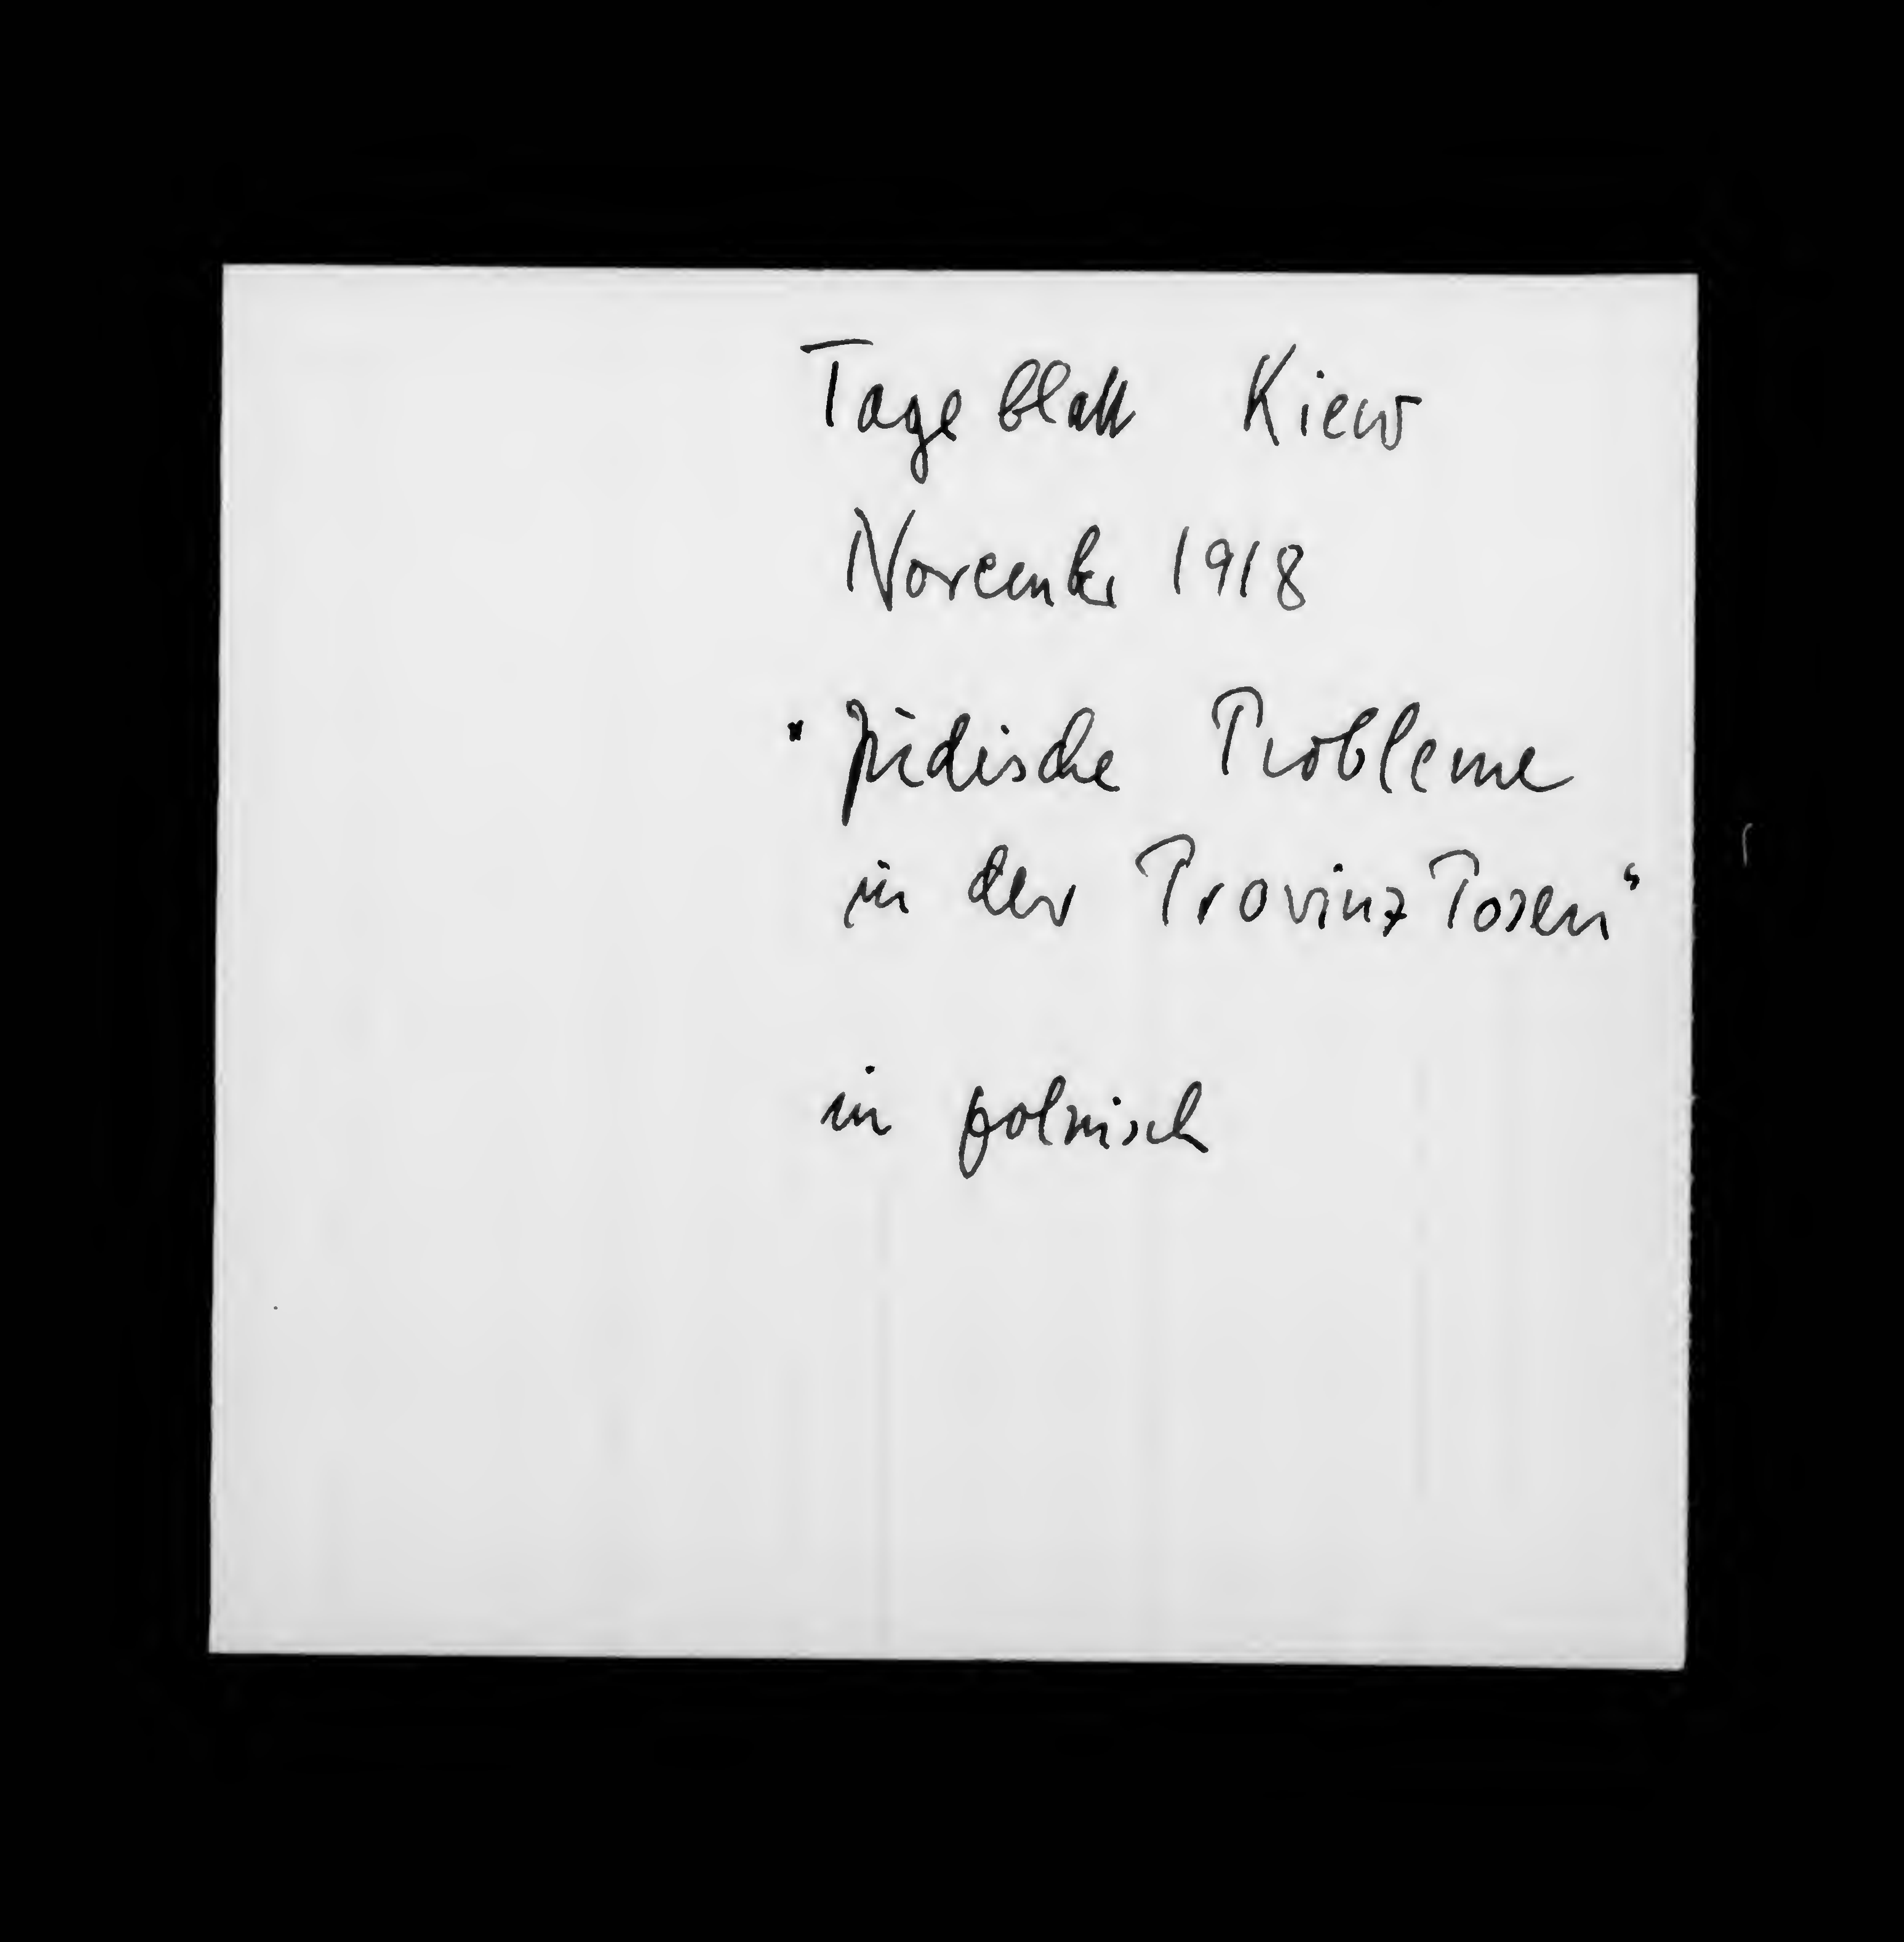 Tageblatt Kiew
November 1918
"Jüdische Probleme
in der Provinz Posen"
in polnisch